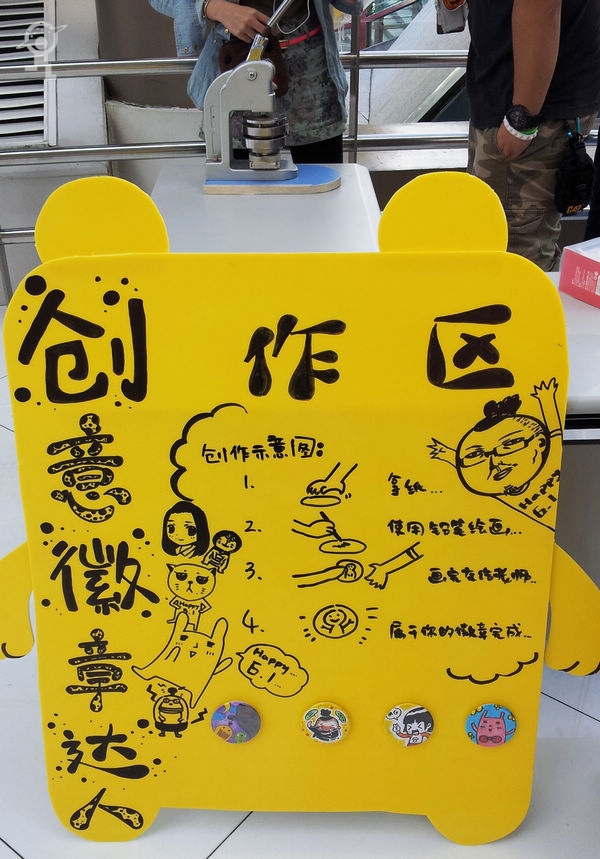 创作区
意
徽
章
达
人
创作示意图:
1. 拿纸...
2. 使用铅笔绘画...
3. 画完交给老师..
4. 属于你的徽章完成...
Happy
6.1
Happy...
6.1...